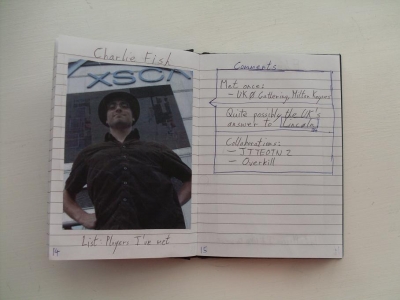 Charlie Fish
XSCA
List: Players I've met
14
Comments
Met once:
- UK Ø Gathering, Milton Keynes
Quite possibly the UK's
answer to Lincoln
Collaborations:
- Overkill
15